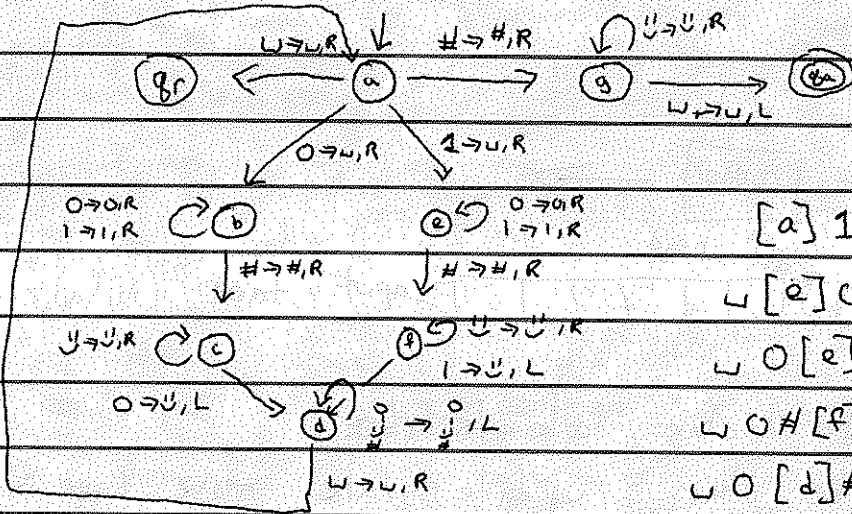 ⌣→⌣,R
⊔→⊔,R
#→#,R
qr
a
g
qa
⊔→⊔,L
0→⊔,R
1→⊔,R
0→0,R
1→1,R
b
e
0→0,R
1→1,R
[a] 1
#→#,R
#→#,R
⊔ [e]
⌣̈→⌣̈,R
c
f
⌣̈→⌣̈,R
1→⌣̈,L
⊔ 0 [e]
0→⌣̈,L
d
→
,L
⊔ 0 # [f
⊔→⊔,R
⊔ 0 [d] #